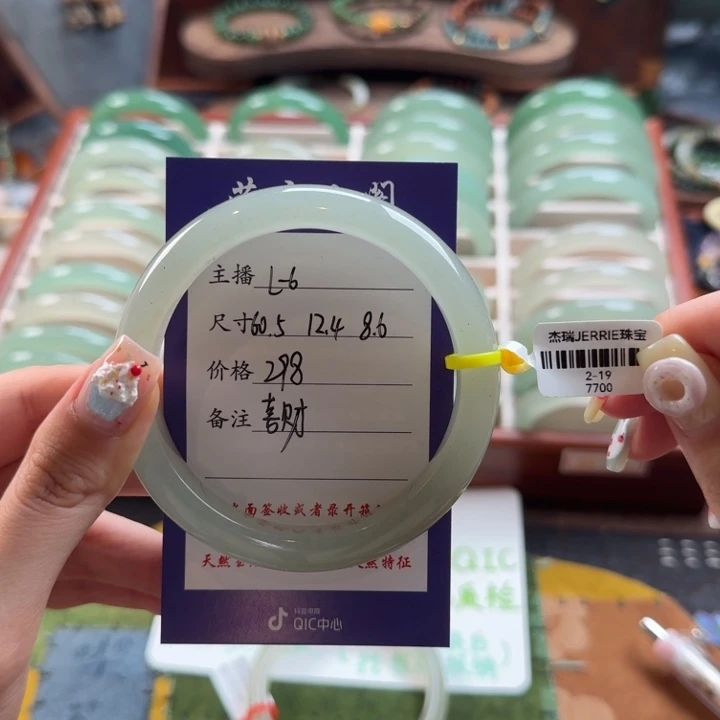 主播 L-6
尺寸 60.5 12.4 8.6
价格 298
备注 喜财
面签收或者录开箱
天然
然特征
抖音电商
QIC中心
杰瑞JERRIE珠宝
2-19
7700
QIC
质检